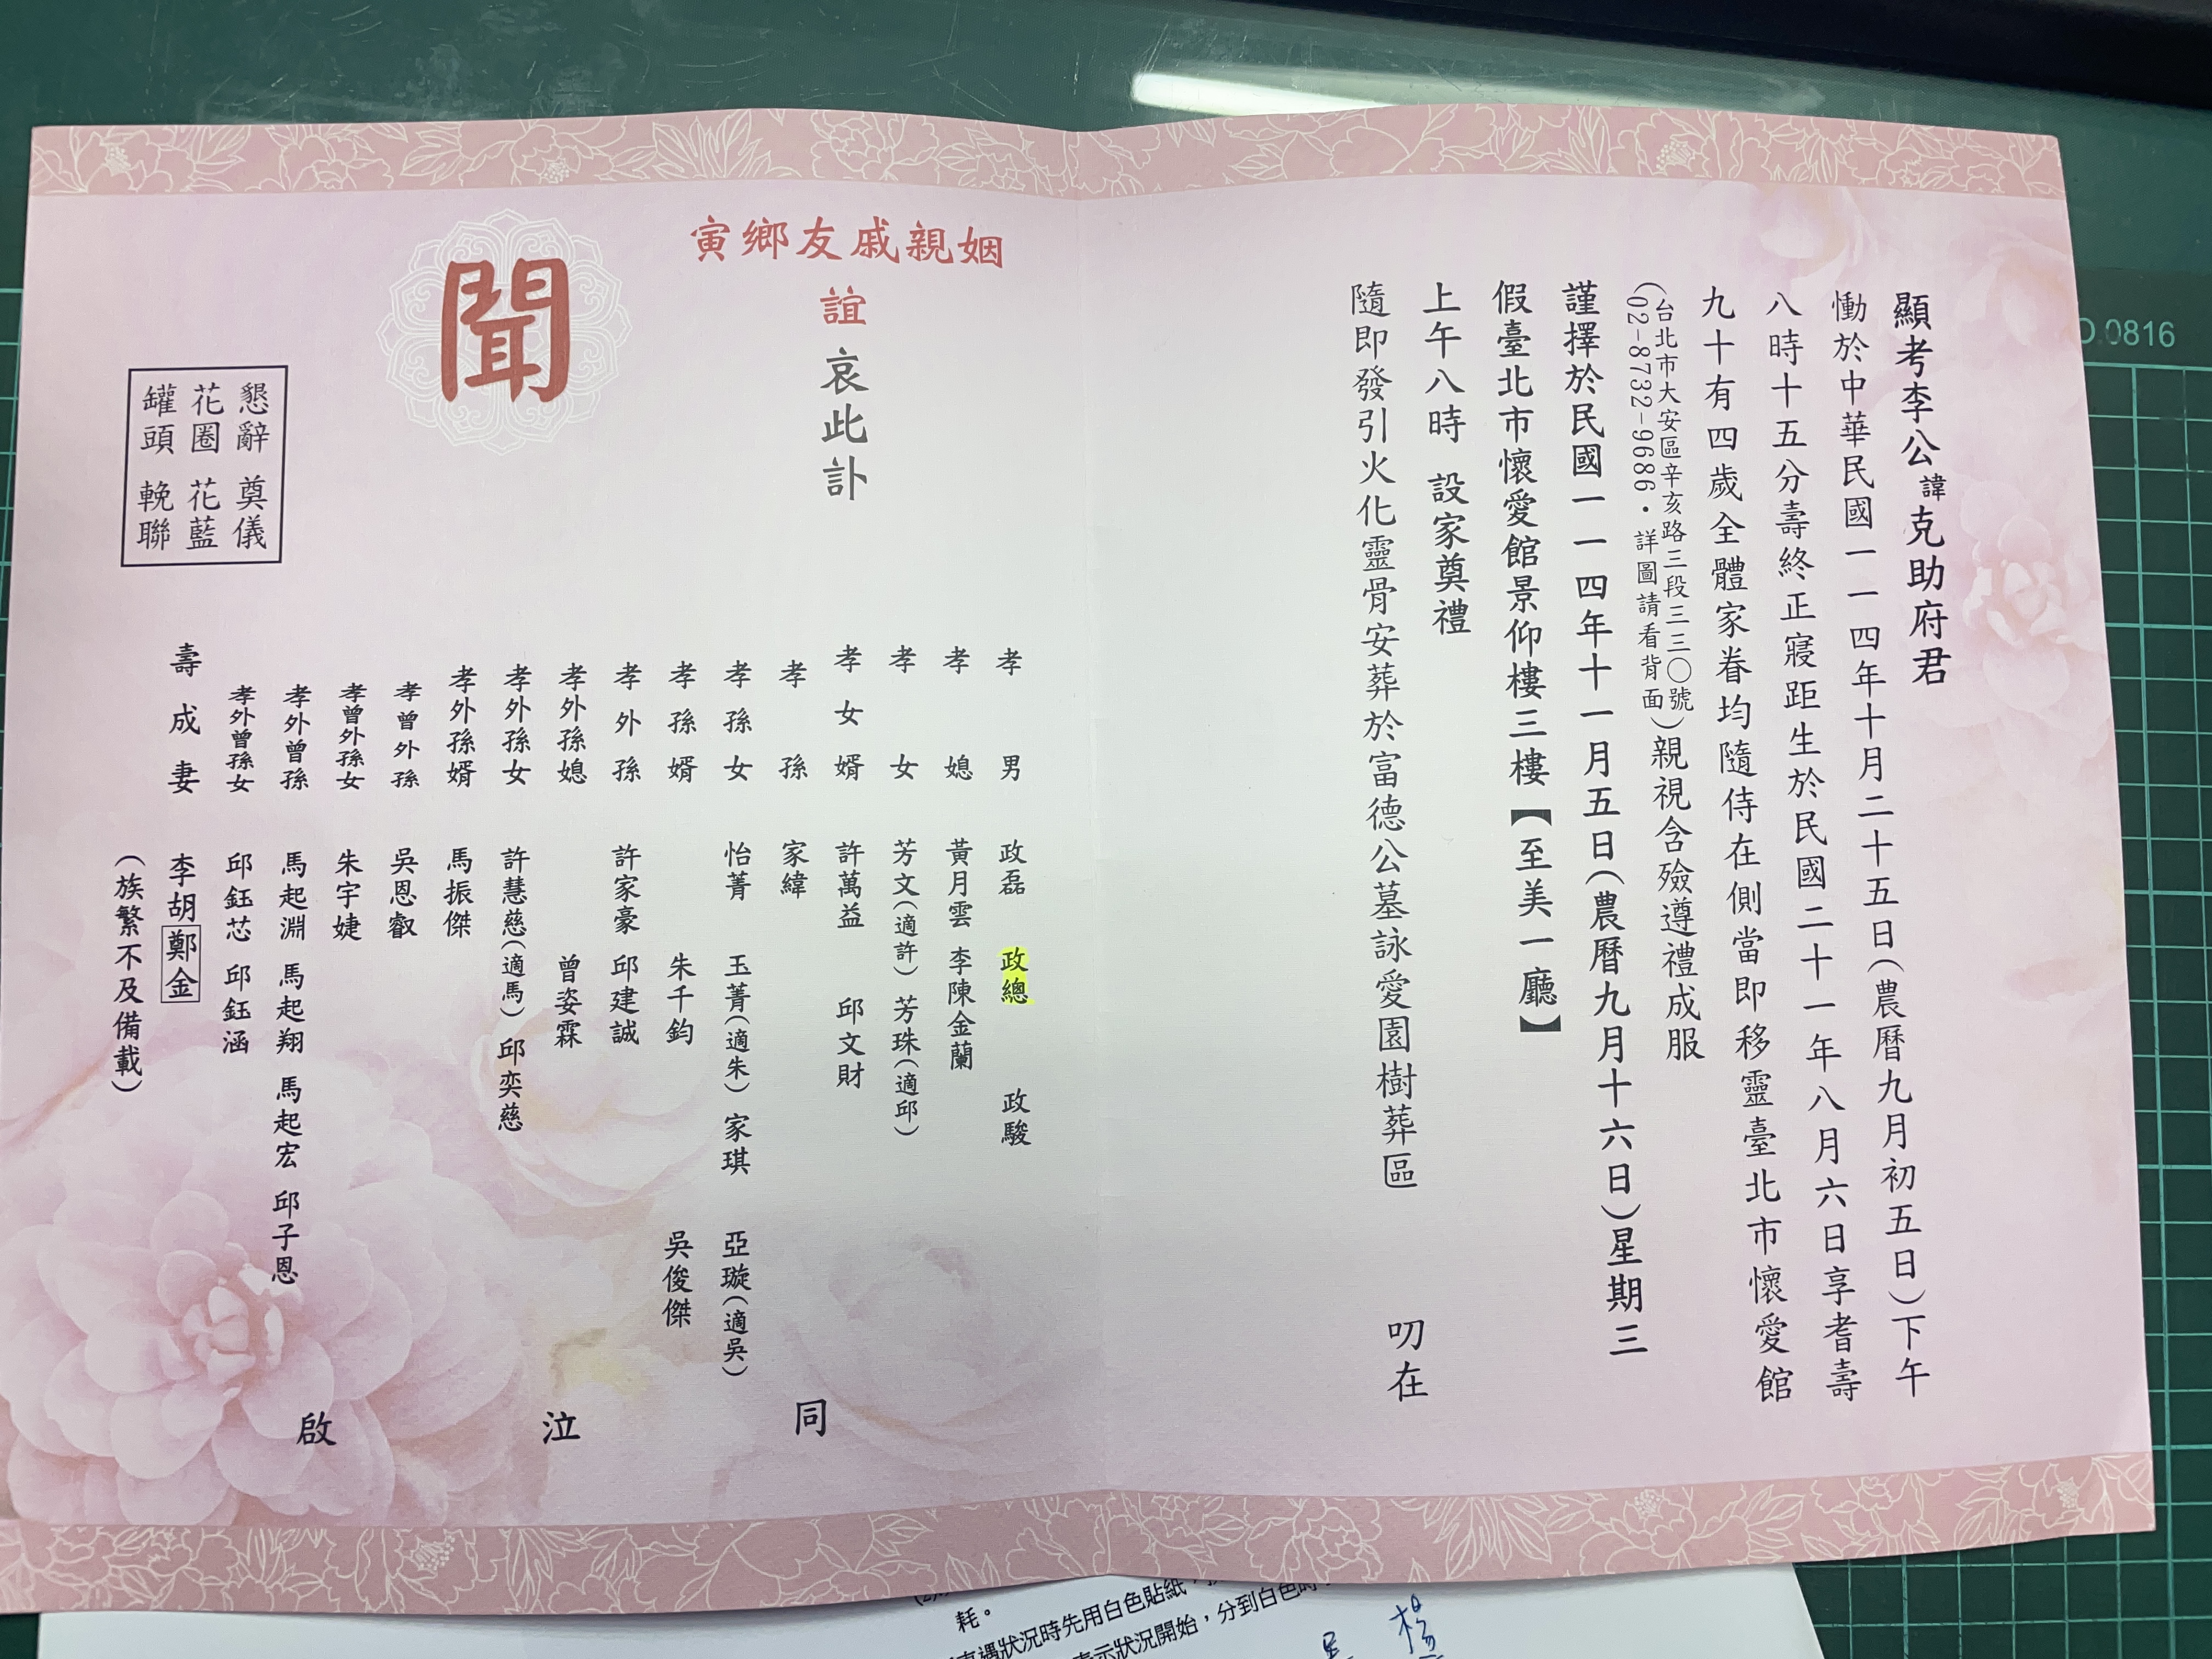 顯考李公諱克助府君
慟於中華民國一一四年十月二十五日(農曆九月初五日)下午
八時十五分壽終正寢距生於民國二十一年八月六日享耆壽
九十有四歲全體家眷均隨侍在側當即移靈臺北市懷愛館
(台北市大安區辛亥路三段三三〇號
02-8732-9686・詳圖請看背面)親視含殮遵禮成服
謹擇於民國一一四年十一月五日(農曆九月十六日)星期三
假臺北市懷愛館景仰樓三樓【至美一廳】
上午八時 設家奠禮
隨即發引火化靈骨安葬於富德公墓詠愛園樹葬區 叨在
寅鄉友戚親姻
誼 哀此訃
聞
懇辭 奠儀
花圈 花藍
罐頭 輓聯
孝男 政磊 政總 政駿
孝媳 黃月雲 李陳金蘭
孝女 芳文(適許) 芳珠(適邱)
孝女婿 許萬益 邱文財
孝孫 家緯
孝孫女 怡菁 玉菁(適朱) 家琪 亞璇(適吳)
孝孫婿 朱千鈞 吳俊傑
孝外孫 許家豪 邱建誠
孝外孫媳 曾姿霖
孝外孫女 許慧慈(適馬) 邱奕慈
孝外孫婿 馬振傑
孝曾外孫 吳恩叡
孝曾外孫女 朱宇婕
孝外曾孫 馬起淵 馬起翔 馬起宏 邱子恩
孝外曾孫女 邱鈺芯 邱鈺涵
壽成妻 李胡鄭金
(族繁不及備載)
同 泣 啟
0816
耗。
遇狀況時先用白色貼紙，
示狀況開始，分到白色
楊